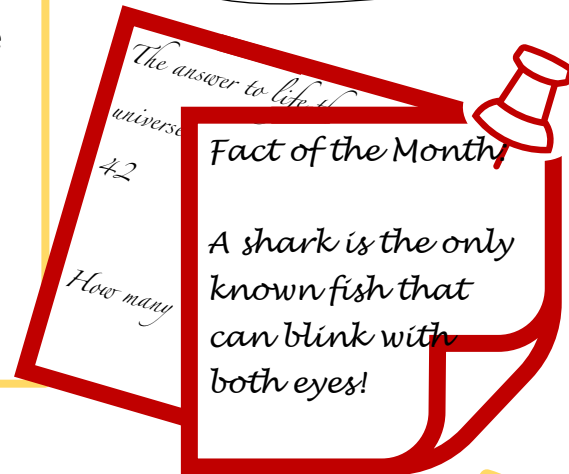 The answer to life
universe
42
How many
Fact of the Month!
A shark is the only
known fish that
can blink with
both eyes!